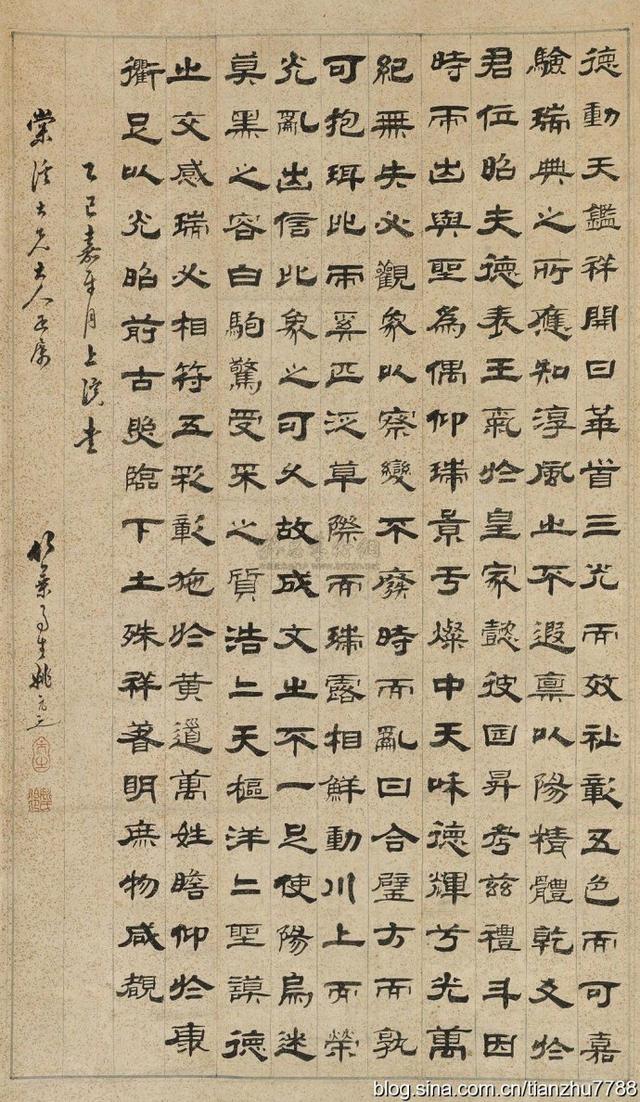 德動天鑑祥開日華首三光而效祉彰五色而可嘉
驗瑞典之所應知淳風之不遐稟以陽精體乾爻於
君位昭夫德表王氣於皇家懿彼囯昇考茲禮斗因
時而出與聖為偶仰瑞景兮燦中天咊德輝兮光萬
紀無失必觀象以察變不廢時而亂日合璧方而孰
可抱珥比而奚匹泛草際而瑞露相鮮動川上而榮
光亂出信比象之可久故成文之不一足使陽烏迷
莫黑之容白駒驚受采之質浩二天樞洋二聖謨德
之交感瑞必相符五彩彰施於黃道萬姓瞻仰於康
衢足以光昭前古照臨下土殊祥著明庶物咸覩
乙巳嘉平月上浣書
棠溪大兄大人
竹葉亭生姚元之
blog.sina.com.cn/tianzhu7788